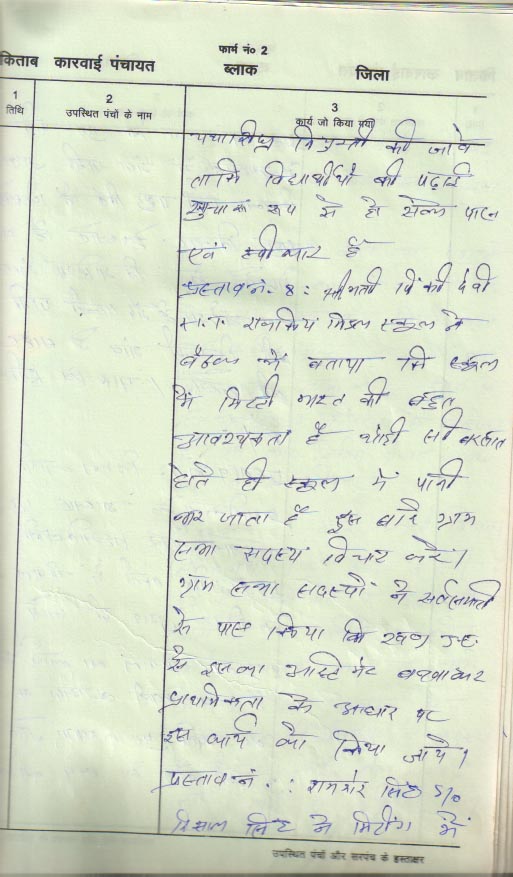 फार्म नं० 2
किताब कारवाई पंचायत ब्लाक जिला
1 2 3
तिथि उपस्थित पंचों के नाम कार्य जो किया गया
की जावे
ताकि विद्यार्थीयों की पढ़ाई
सुचारू रूप से हो सके पास
एवं स्वीकार है
प्रस्ताव नं. 8: श्रीमती पिंकी देवी
मिडल स्कूल ने
बैठक में बताया कि स्कूल
में मिट्टी भरत की बहुत
आवश्यकता है थोड़ी सी बरसात
होते ही स्कूल में पानी
भर जाता है इस बारे ग्राम
सभा सदस्य विचार करें।
ग्राम सभा सदस्यों ने सर्वसमती
से पास किया कि खण्ड
से इसका अस्टिमेट बनवाकर
प्राथमिकता के आधार पर
इस कार्य को किया जाये।
प्रस्ताव नं. : शमशेर सिंह S/o
सिंह ने मिटींग में
उपस्थित पंचों और सरपंच के हस्ताक्षर